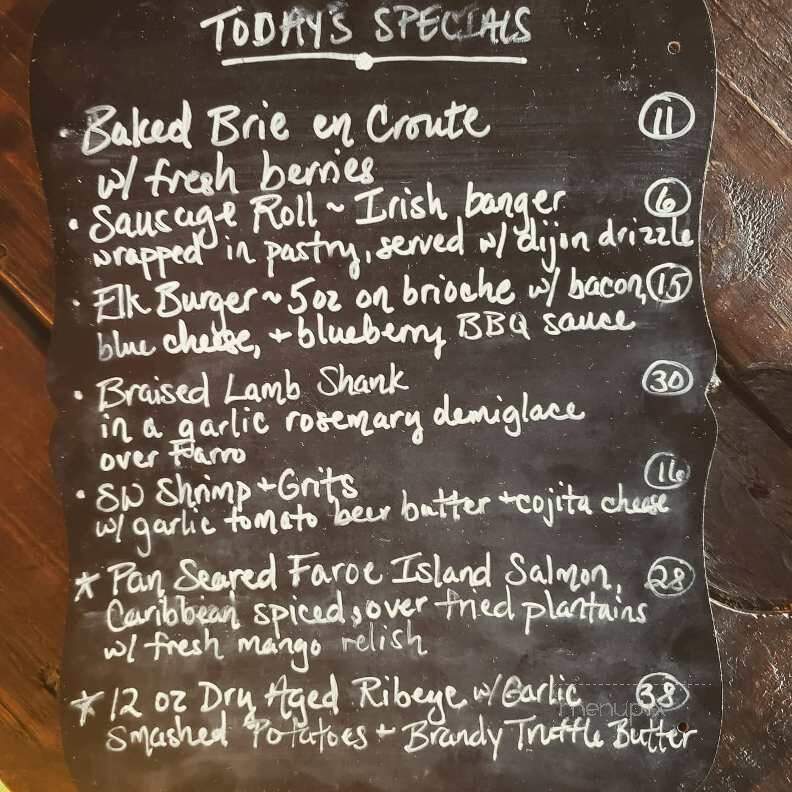 TODAY'S SPECIALS
• Baked Brie en Croute 11
w/ fresh berries
• Sausage Roll ~ Irish banger 6
wrapped in pastry, served w/ dijon drizzle
• Elk Burger ~ 5oz on brioche w/ bacon, 15
blue cheese, + blueberry BBQ sauce
• Braised Lamb Shank 30
in a garlic rosemary demiglace
over Farro
• SW Shrimp + Grits 16
w/ garlic tomato beer butter + cojita cheese
* Pan Seared Faroe Island Salmon, 28
Caribbean spiced, over fried plantains
w/ fresh mango relish
* 12 oz Dry Aged Ribeye w/ Garlic 38
Smashed Potatoes + Brandy Truffle Butter
menupix